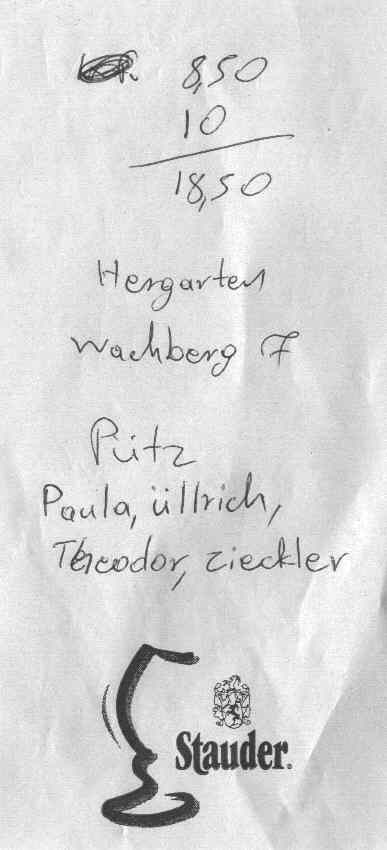 8,50
10
18,50
Hergarten
Wachberg 7
Pütz
Paula, üllrich,
Theodor, zieckler
Stauder.